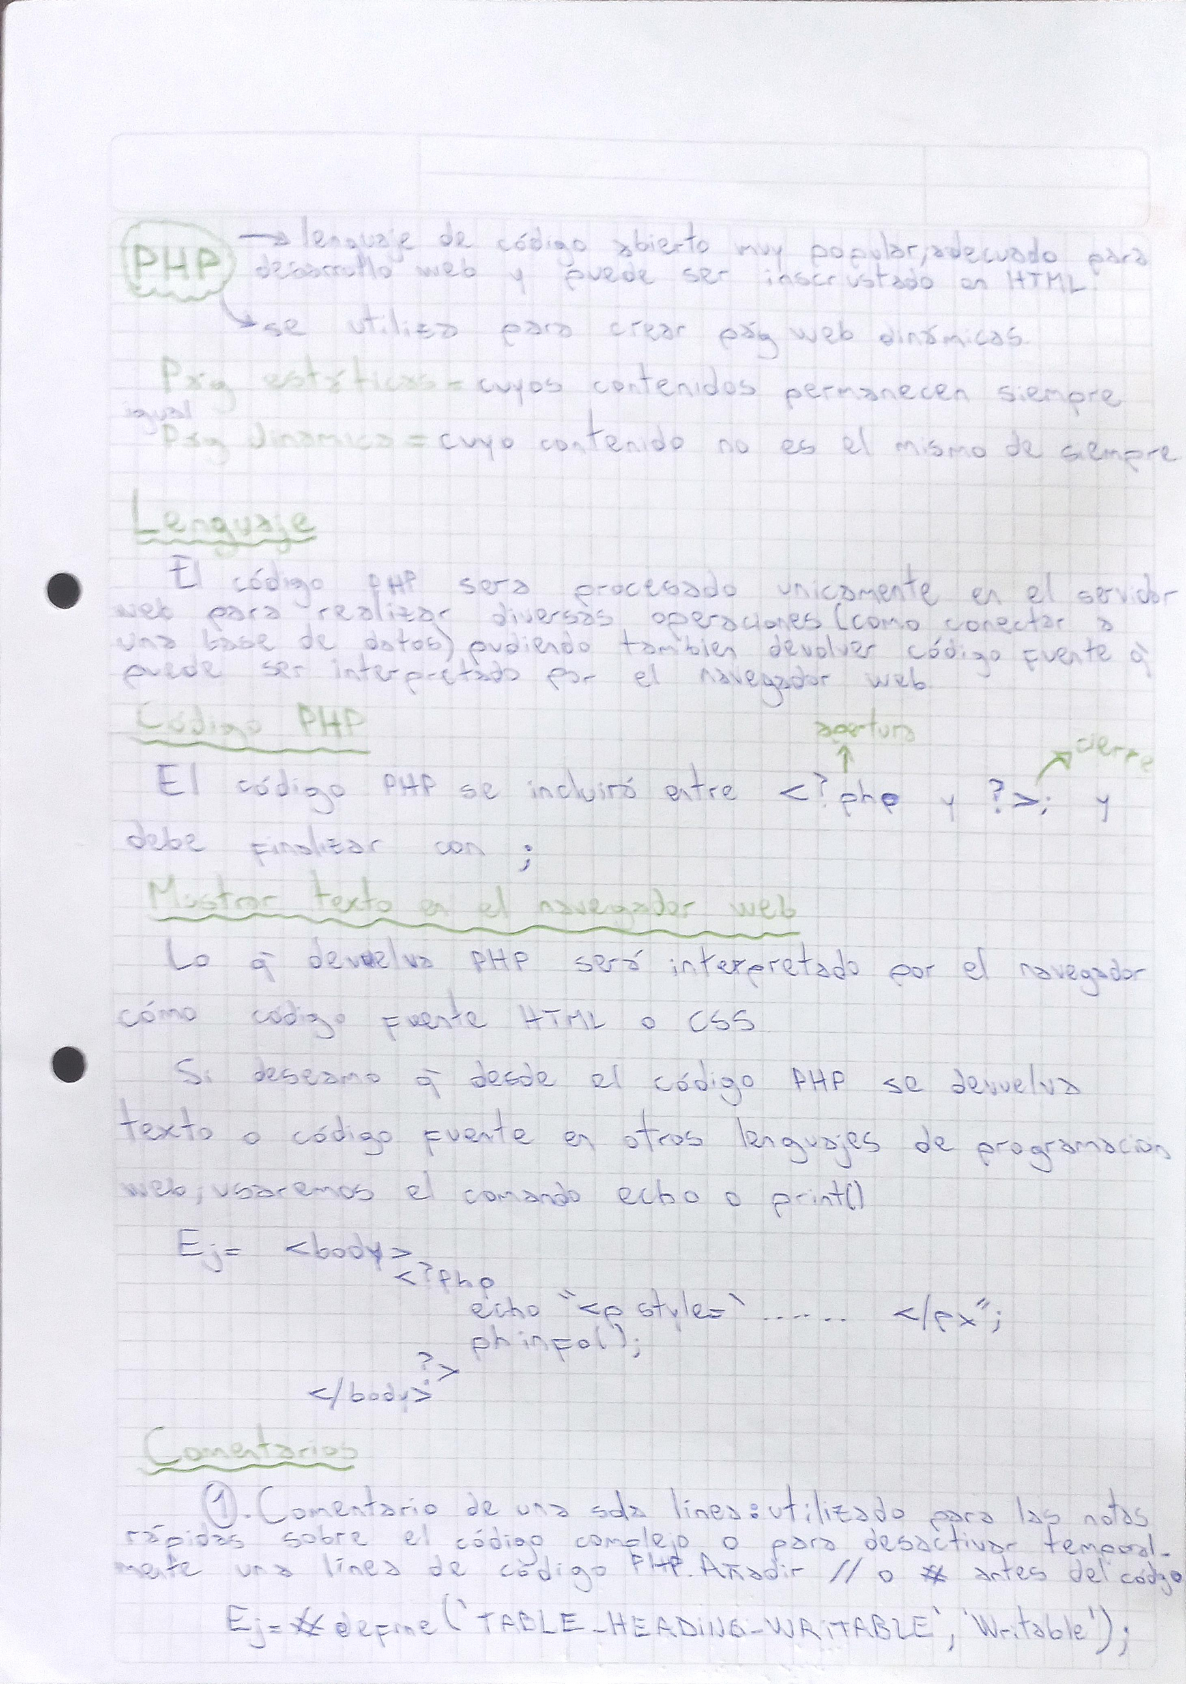 PHP → lenguaje de código abierto muy popular, adecuado para
desarrollo web y puede ser inscrustado en HTML.
↳ se utiliza para crear pág web dinámicas.
Pág estáticas = cuyos contenidos permanecen siempre
igual
Pág dinamica = cuyo contenido no es el mismo de siempre
Lenguaje
El código PHP sera procesado unicamente en el servidor
web para realizar diversas operaciones (como conectar a
una base de datos) pudiendo tambien devolver código fuente q̄
puede ser interpretado por el navegador web
Código PHP
apertura cierre
El código PHP se incluiró entre <?php y ?>; y
debe finalizar con ;
Mostrar texto en el navegador web
Lo q̄ devuelva PHP seró interpretado por el navegador
cómo código fuente HTML o CSS
Si deseamo q̄ desde el código PHP se devuelva
texto o código fuente en otros lenguajes de programacion
web, usaremos el comando echo o print()
Ej= <body>
<?php
echo "<p style=' ...... </px";
phinfo();
?>
</body>
Comentarios
①. Comentario de una sola línea: utilizado para las notas
rápidas sobre el código complejo o para desactivar temporal-
mente una línea de código PHP. Añadir // o # antes del código
Ej= # define ('TABLE_HEADING_WRITABLE', 'Writable');